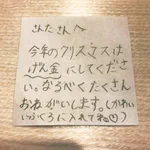 さんたさんへ
今年のクリスマスは
げん金にしてくださ
い。なるべくたくさん
おねがいします。(かわい
いふくろに入れてね)